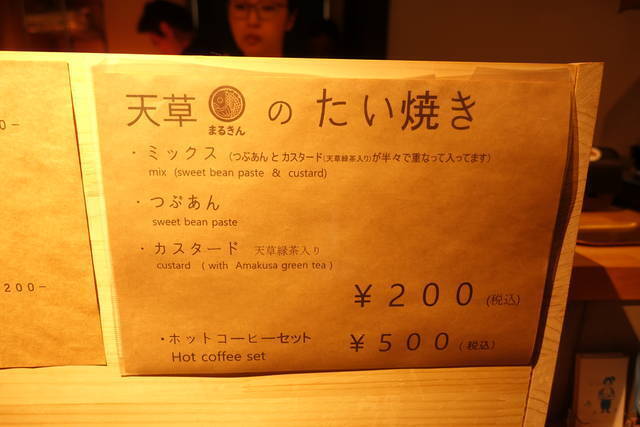 天草 まるきん の たい焼き
・ミックス (つぶあん と カスタード(天草緑茶入り)が半々で重なって入ってます)
mix (sweet bean paste & custard)
・つぶあん
sweet bean paste
・カスタード 天草緑茶入り
custard ( with Amakusa green tea )
¥200 (税込)
・ホットコーヒーセット ¥500 (税込)
Hot coffee set
0-
200-